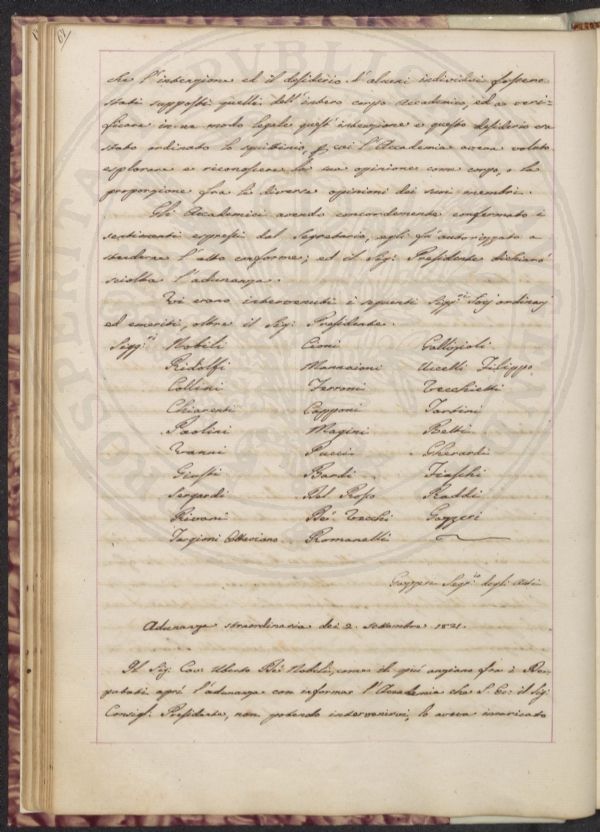 61
che l'intenzione ed il desiderio d'alcuni individui fossero
stati supposti quelli dell'intero corpo Accademico, ed a veri-
ficare in un modo legale quest'intenzione e questo desiderio era
stato ordinato lo squittinio, p. cui l'Accademia aveva voluto
esplorare e riconoscere la sua opinione come corpo, e la
proporzione fra le diverse opinioni dei suoi membri.
Gli Accademici avendo concordemente confermato i
sentimenti espressi dal Segretario, egli fu autorizzato a
stendere l'atto conforme; ed il Sig. Presidente dichiarò
sciolta l'adunanza.
Vi erano intervenuti i seguenti Sigg.ri Socj ordinarj
ed emeriti, oltre il Sig. Presidente.
Sigg.ri Nobili Cioni Gallizioli
Ridolfi Mannaioni Uccelli Filippo
Collini Ferroni Vecchietti
Chiarenti Capponi Tartini
Paolini Magini Betti
Vanni Pucci Gherardi
Giusti Bardi Fieschi
Sergardi Del Rosso Raddi
Rivani Bė. Vecchi Gazzeri
Targioni Ottaviano Romanelli
Gazzeri Seg.rio degli Atti
Adunanza straordinaria dei 2. Settembre 1821.
Il Sig. Cav. Uberto Dei Nobili, come il più anziano fra i De-
putati aprì l'adunanza con informar l'Accademia che S. Ec. il Sig.
Consigl. Presidente, non potendo intervenirvi, lo aveva incaricato